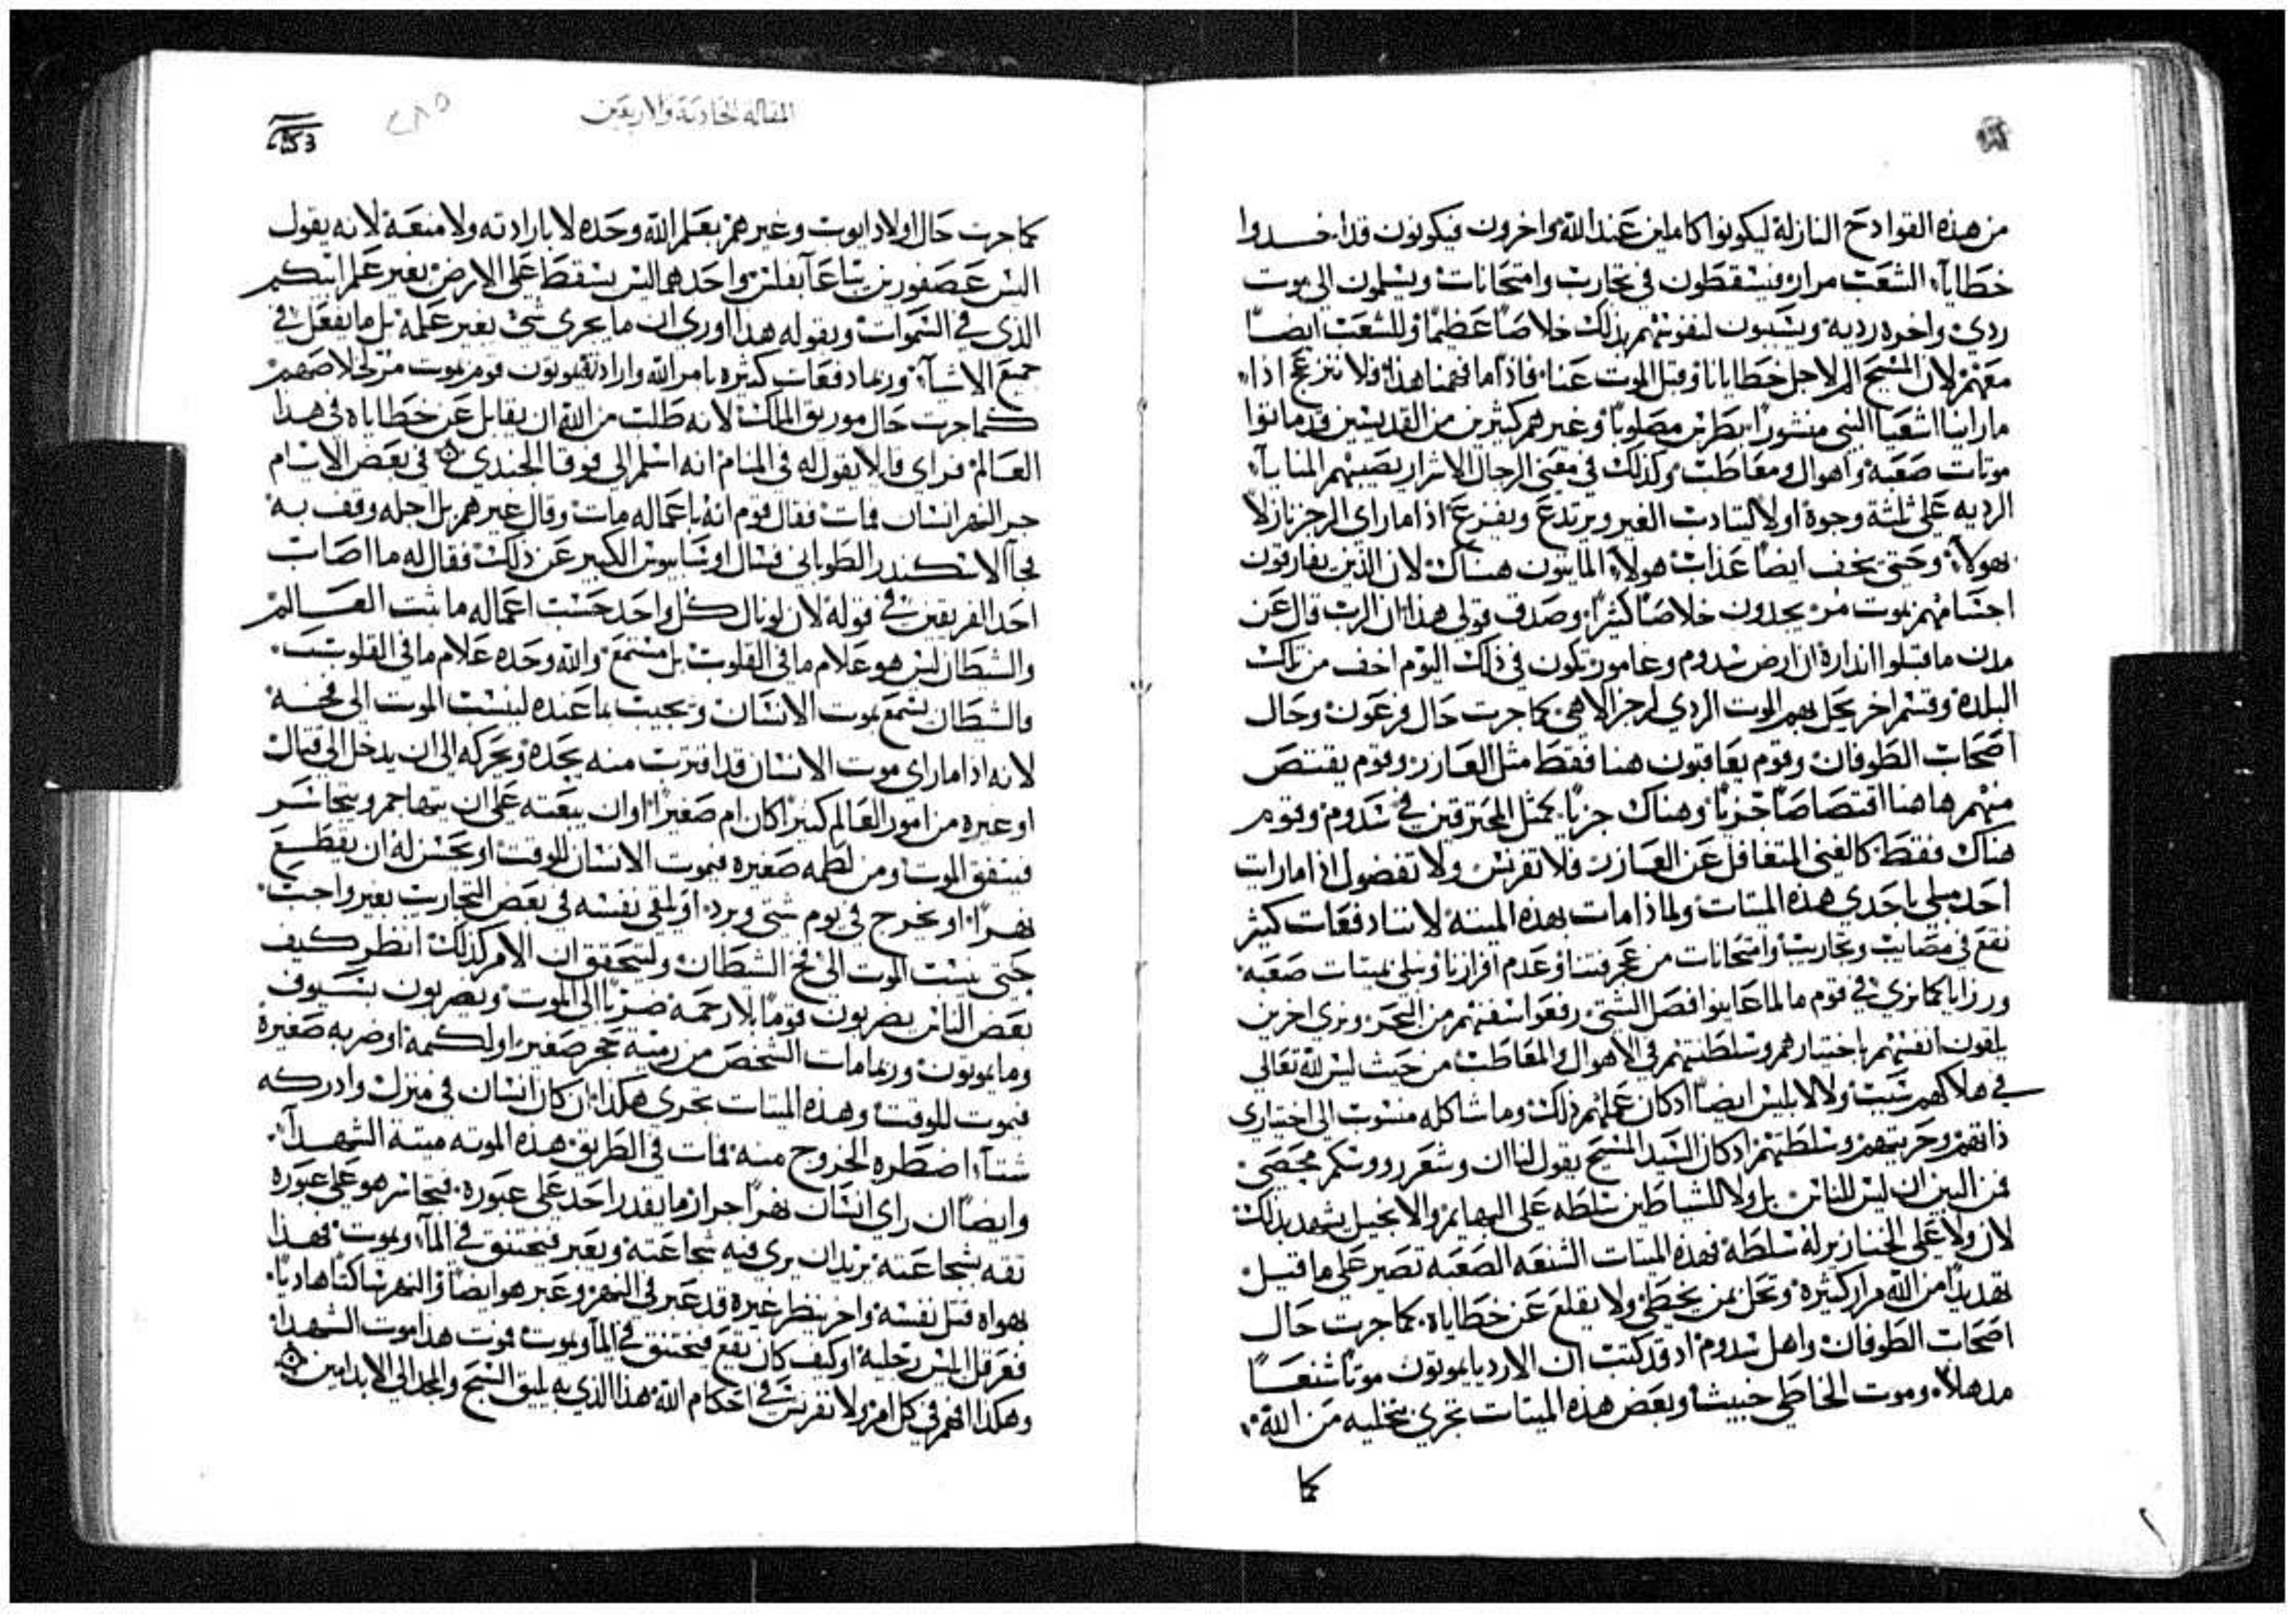 من هذه القوادح النازلة ليكونوا كاملين عند الله واخرون فيكونون قد اخسدوا
خطاياء الشعب مرار فيسقطون في تجارب وامتحانات ويسلمون الى موت
ردي واخره رديه ويسببون لنفوسهم بذلك خلاصًا عظيمًا وللشعب ايضًا
معهم لان المسيح الم لاجل خطايانا وقبل الموت عنا فاذا ما فهمنا هذا فلا ننزعج اذا
ما راينا اشعيا النبي منشورًا بطرس مصلوبًا وغيرهم كثيرين من القديسين قد ماتوا
موتات صعبة واهوال ومعاطب وكذلك في معنى الرجال الاشرار تصيبهم المنايا
الرديه على ثلثة وجوه اولا ليتادب الغير ويرتدع ويفزع اذا ما راى الرجز نازلا
بهولآء وحتى يخف ايضًا عذاب هولاء المايتون هناك لان الذين يفارقون
اجسامهم بموت مر يجدون خلاصًا كثيرًا وصدق قولي هذا ان الرب قال عن
مدن ما قبلوا انذاره ان ارض سدوم وعامور تكون في ذلك اليوم اخف من تلك
البلدة وقسم اخر يحل بهم الموت الردي لرجز الاهي كما جرت حال فرعون وحال
اصحاب الطوفان وقوم يعاقبون هنا فقط مثل العازر وقوم يقتص
منهم هاهنا اقتصاصًا جزيًا وهناك جزيًا كمثل المحترقين في سدوم وقوم
هناك فقط كالغني المتغافل عن العازر فلا تفرنس ولا تفضول اذا ما رايت
احد مبلي باحدى هذه الميتات ولماذا مات بهذه الميتة لاننا دفعات كثير
نقع في مصايب وتجاريب وامتحانات من عجرفتنا وعدم افرازنا ونبلي بميتات صعبه
ورزايا كما نرى في قوم ما لما عاينوا فصل الشتي رفعوا سفنهم من البحر ونرى اخرين
يلقون انفسهم باختيارهم وسلطنتهم في الاهوال والمعاطب من حيث ليس لله تعالى
في هلاكهم سبب ولا لابليس ايضًا اذ كان عملهم ذلك وما شاكله منسوب الى اختياري
ذاتهم وحريتهم وسلطتهم اذ كان السيد المسيح يقول لنا ان وشعر رووسكم محصي
فمن البين ان ليس للناس بل ولا للشياطين سلطه على البهايم والانجيل يشهد بذلك
لان ولا على الخنازير له سلطة فهذه الميتات الشنعه الصعبة تصير على ما قيل
تهديدًا من الله مرار كثيرة وتحل بمن يخطي ولا يقلع عن خطاياه كما جرت حال
اصحاب الطوفان واهل سدوم اذ قد كتب ان الارديا يموتون موتًا شنعًا
مدهلا وموت الخاطي خبيث وبعض هذه الميتات تجري بتخليه من الله
كما
المقاله الحادية والاربعين
كما جرت حال اولاد ايوب وغيرهم بعلم الله وحده لا بارادته ولا منعة لانه يقول
اليس عصفورين يتباعا بفلس وواحدهما ليس يسقط على الارض بغير علم ابيكم
الذي في السموات وبقوله هذا اورى ان ما يجري شي بغير علمه بل ما يفعل في
جميع الاشيآء وربما دفعات كثيره بامر الله وارادته يموتون قوم بموت مر لخلاصهم
كما جرت حال موريق الملك لانه طلب من الله ان يقابل عن خطاياه في هذا
العالم فراى قايلا يقول له في المنام انه اسلم الى فوقا الجندي في بعض الايام
جر النهر انسان فمات فقال قوم انه باعماله مات وقال غيرهم بل اجله وقف به
فجآ الاسكندر الطوباني فسال اوساسوس الكبير عن ذلك فقال له ما اصاب
احد الفريقين في قوله لان لو نال كل واحد حسب اعماله ما ثبت العالم
والشيطان ليس هو علام ما في القلوب بل مستمع والله وحده علام ما في القلوب
والشيطان يسمع بموت الانسان ويجيب بما عنده لينسب الموت الى فخه
لانه اذا ما راى موت الانسان قد اقترب منه يجده ويحركه الى ان يدخل الى قتال
او غيره من امور العالم كبيرًا كان ام صغيرًا او ان يبعته على ان يتهاجم ويتجاسر
فيتفق الموت ومن لطمه صغيره فيموت الانسان للوقت او يحسن له ان يقطع
نهرًا او يخرج في يوم شتي وبرد او يلقي نفسه في بعض التجاريب بغير واجب
حتى ينسب الموت الى فخ الشيطان وليتحقق ان الامر كذلك انظر كيف
بعض الناس يضربون قومًا بلا رحمة ضربًا الى الموت ويضربون بسيوف
وما يموتون وربما مات الشخص من رمية حجر صغير او لكمه او ضربه صغيرة
فيموت للوقت وهذه الميتات تجري هكذا ان كان انسان في منزل وادركه
شتآء اضطره الخروج منه فمات في الطريق هذه الموته ميتة الشهدآء
وايضًا ان راى انسان نهرًا جرار ما يقدر احد على عبوره فيتجاسر هو على عبوره
ثقه بشجاعته يريد ان يرى فيه شجاعته ويعبر فيختنق في المآء ويموت فهذا
بهواه قتل نفسه واخر ينظر غيره قد عبر في النهر وعبر هو ايضًا والنهر ساكنًا هاديًا
فعرقل ابليس رجليه او كيف كان يقع فيختنق في المآ ويموت فموت هذا موت الشهدآ
وهكذا افهم في كل امر ولا تفرنس في احكام الله هذا الذي به يليق التسبيح والمجد الى الابد امين